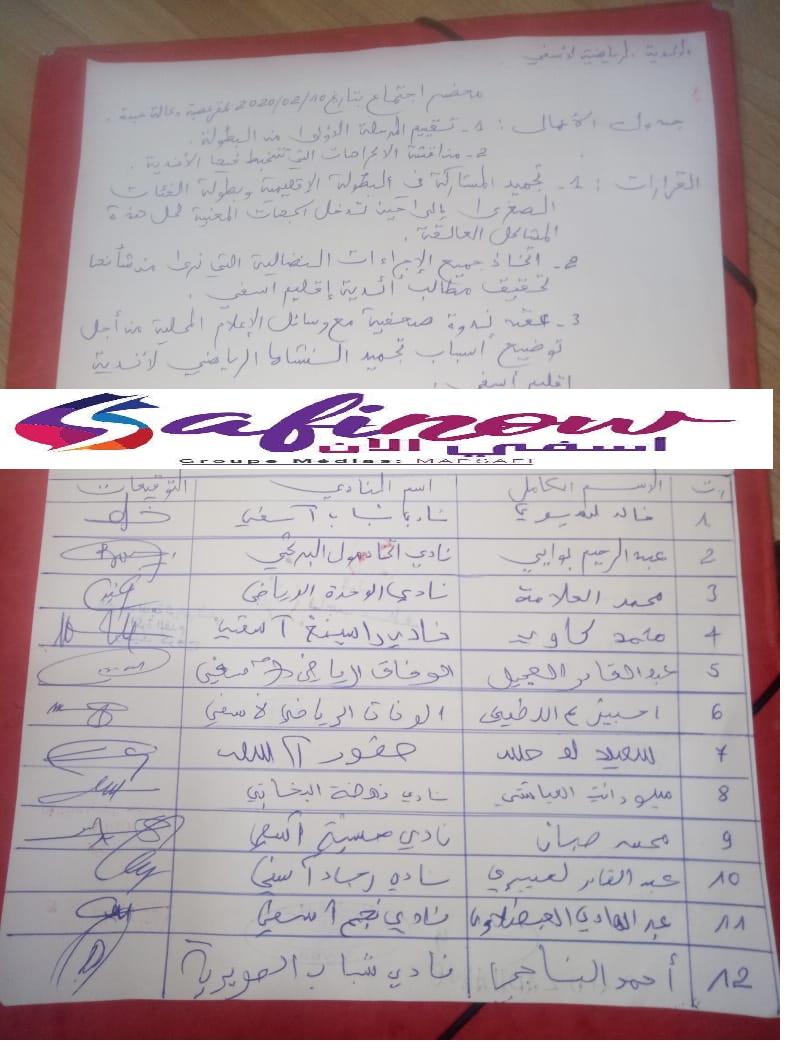 الأندية الرياضية لآسفي
محضر اجتماع بتاريخ 2020/02/10
جدول الأعمال : 1- تقييم المرحلة الأولى من البطولة .
2- مناقشة الاكراهات التي تتخبط فيها الأندية .
القرارات : 1- تجميد المشاركة في البطولة الإقليمية وبطولة الفئات
الصغرى إلى حين تدخل الجهات المعنية لحل هذه
المشاكل العالقة .
2- اتخاذ جميع الإجراءات النضالية التي نرى من شأنها
تحقيق مطالب أندية إقليم آسفي .
3- عقد ندوة صحفية مع وسائل الإعلام المحلية من أجل
توضيح أسباب تجميد النشاط الرياضي لأندية
اقليم آسفي .
Safinow
أسفي الآن
Groupe Médias: MAPSAFI
ر.ت الاسم الكامل اسم النادي التوقيعات
1 خالد نادي شباب آسفي
2 عبد الرحيم نادي
3 محمد العلامة نادي الوحدة الرياضي
4 محمد نادي راسينغ آسفي
5 عبد القادر الوفاق الرياضي
6 الوفاق الرياضي لآسفي
7 سعيد
8 نادي نهضة البخاتي
9 محمد نادي حسنية آسفي
10 عبد القادر لعبيدي نادي رجاء آسفي
11 عبد الهادي نادي نجم آسفي
12 أحمد الناجي نادي شباب الصويرية